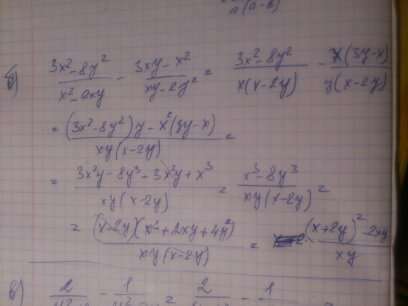 a(a-b)
б) (3x²-8y²)/(x²-2xy) - (3xy-x²)/(xy-2y²) = (3x²-8y²)/(x(x-2y)) - x(3y-x)/(y(x-2y))
= ((3x²-8y²)y - x²(3y-x))/(xy(x-2y)) =
= (3x²y-8y³-3x²y+x³)/(xy(x-2y)) = (x³-8y³)/(xy(x-2y)) =
= (x-2y)(x²+2xy+4y²)/(xy(x-2y)) = ((x+2y)²-2xy)/(xy)
в) 2 - 1 = 2 - 1